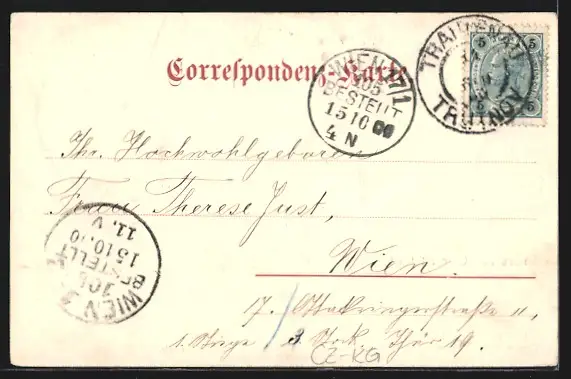 Correspondenz-Karte
TRAUTENAU
TRUTNOV
5 5
5 5
WIEN 17/1
105
BESTELLT
15 10 00
4 N
Ihr. Hochwohlgeboren
Frau Therese Just,
Wien.
17. Ottakringerstraße 11,
1. Stiege / 3. Stock, Thür 19.
CZ-KG
WIEN
105
BESTELLT
15 10.00
11. V